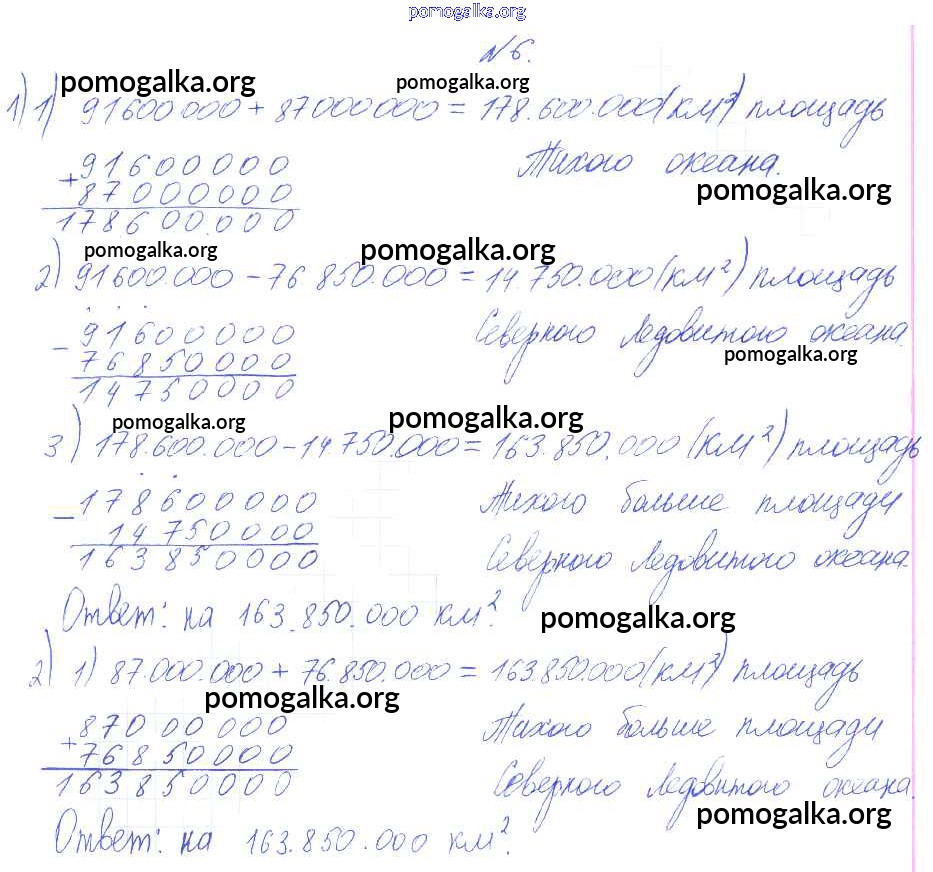 pomogalka.org
№6.
pomogalka.org pomogalka.org
1) 1) 91600000 + 87000000 = 178.600.000 (км²) площадь
+ 91600000 Тихого океана.
87000000 pomogalka.org
178600.000
pomogalka.org pomogalka.org
2) 91600.000 - 76 850.000 = 14.750.000 (км²) площадь
- 91600000 Северного Ледовитого океана.
76850000 pomogalka.org
14750000
pomogalka.org pomogalka.org
3) 178.600.000 - 14.750.000 = 163.850.000 (км²) площадь
- 178600000 Тихого больше площади
14750000
163850000 Северного Ледовитого океана.
Ответ: на 163.850.000 км².
pomogalka.org
2) 1) 87.000.000 + 76.850.000 = 163.850.000 (км²) площадь
pomogalka.org
+ 87000000 Тихого больше площади
76850000
163850000 Северного Ледовитого океана.
pomogalka.org
Ответ: на 163.850.000 км².